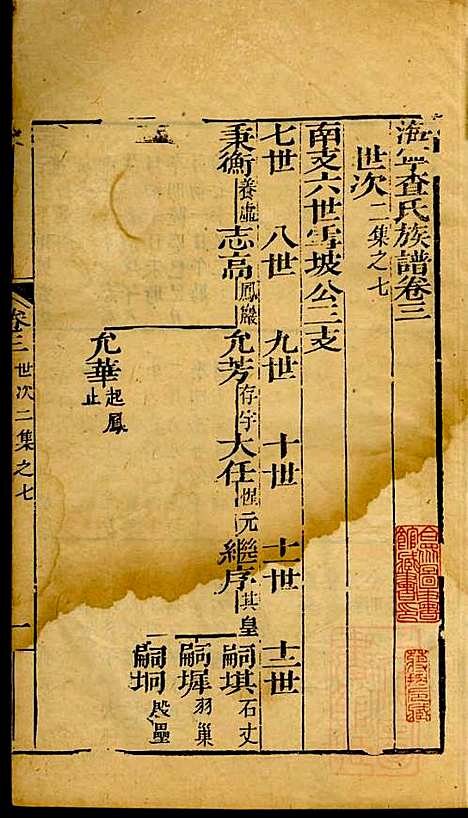 海寧查氏族譜卷三
世次二集之七
南支六世雪坡公三支
七世 八世 九世 十世 十一世 十二世
秉衡養虛 志高鳳巖 允芳存宇 大任惺元 繼序其皇 嗣琪石丈
嗣墀羽巢
嗣垌殷壘
允華起鳳止
卷三 世次二集之七 一